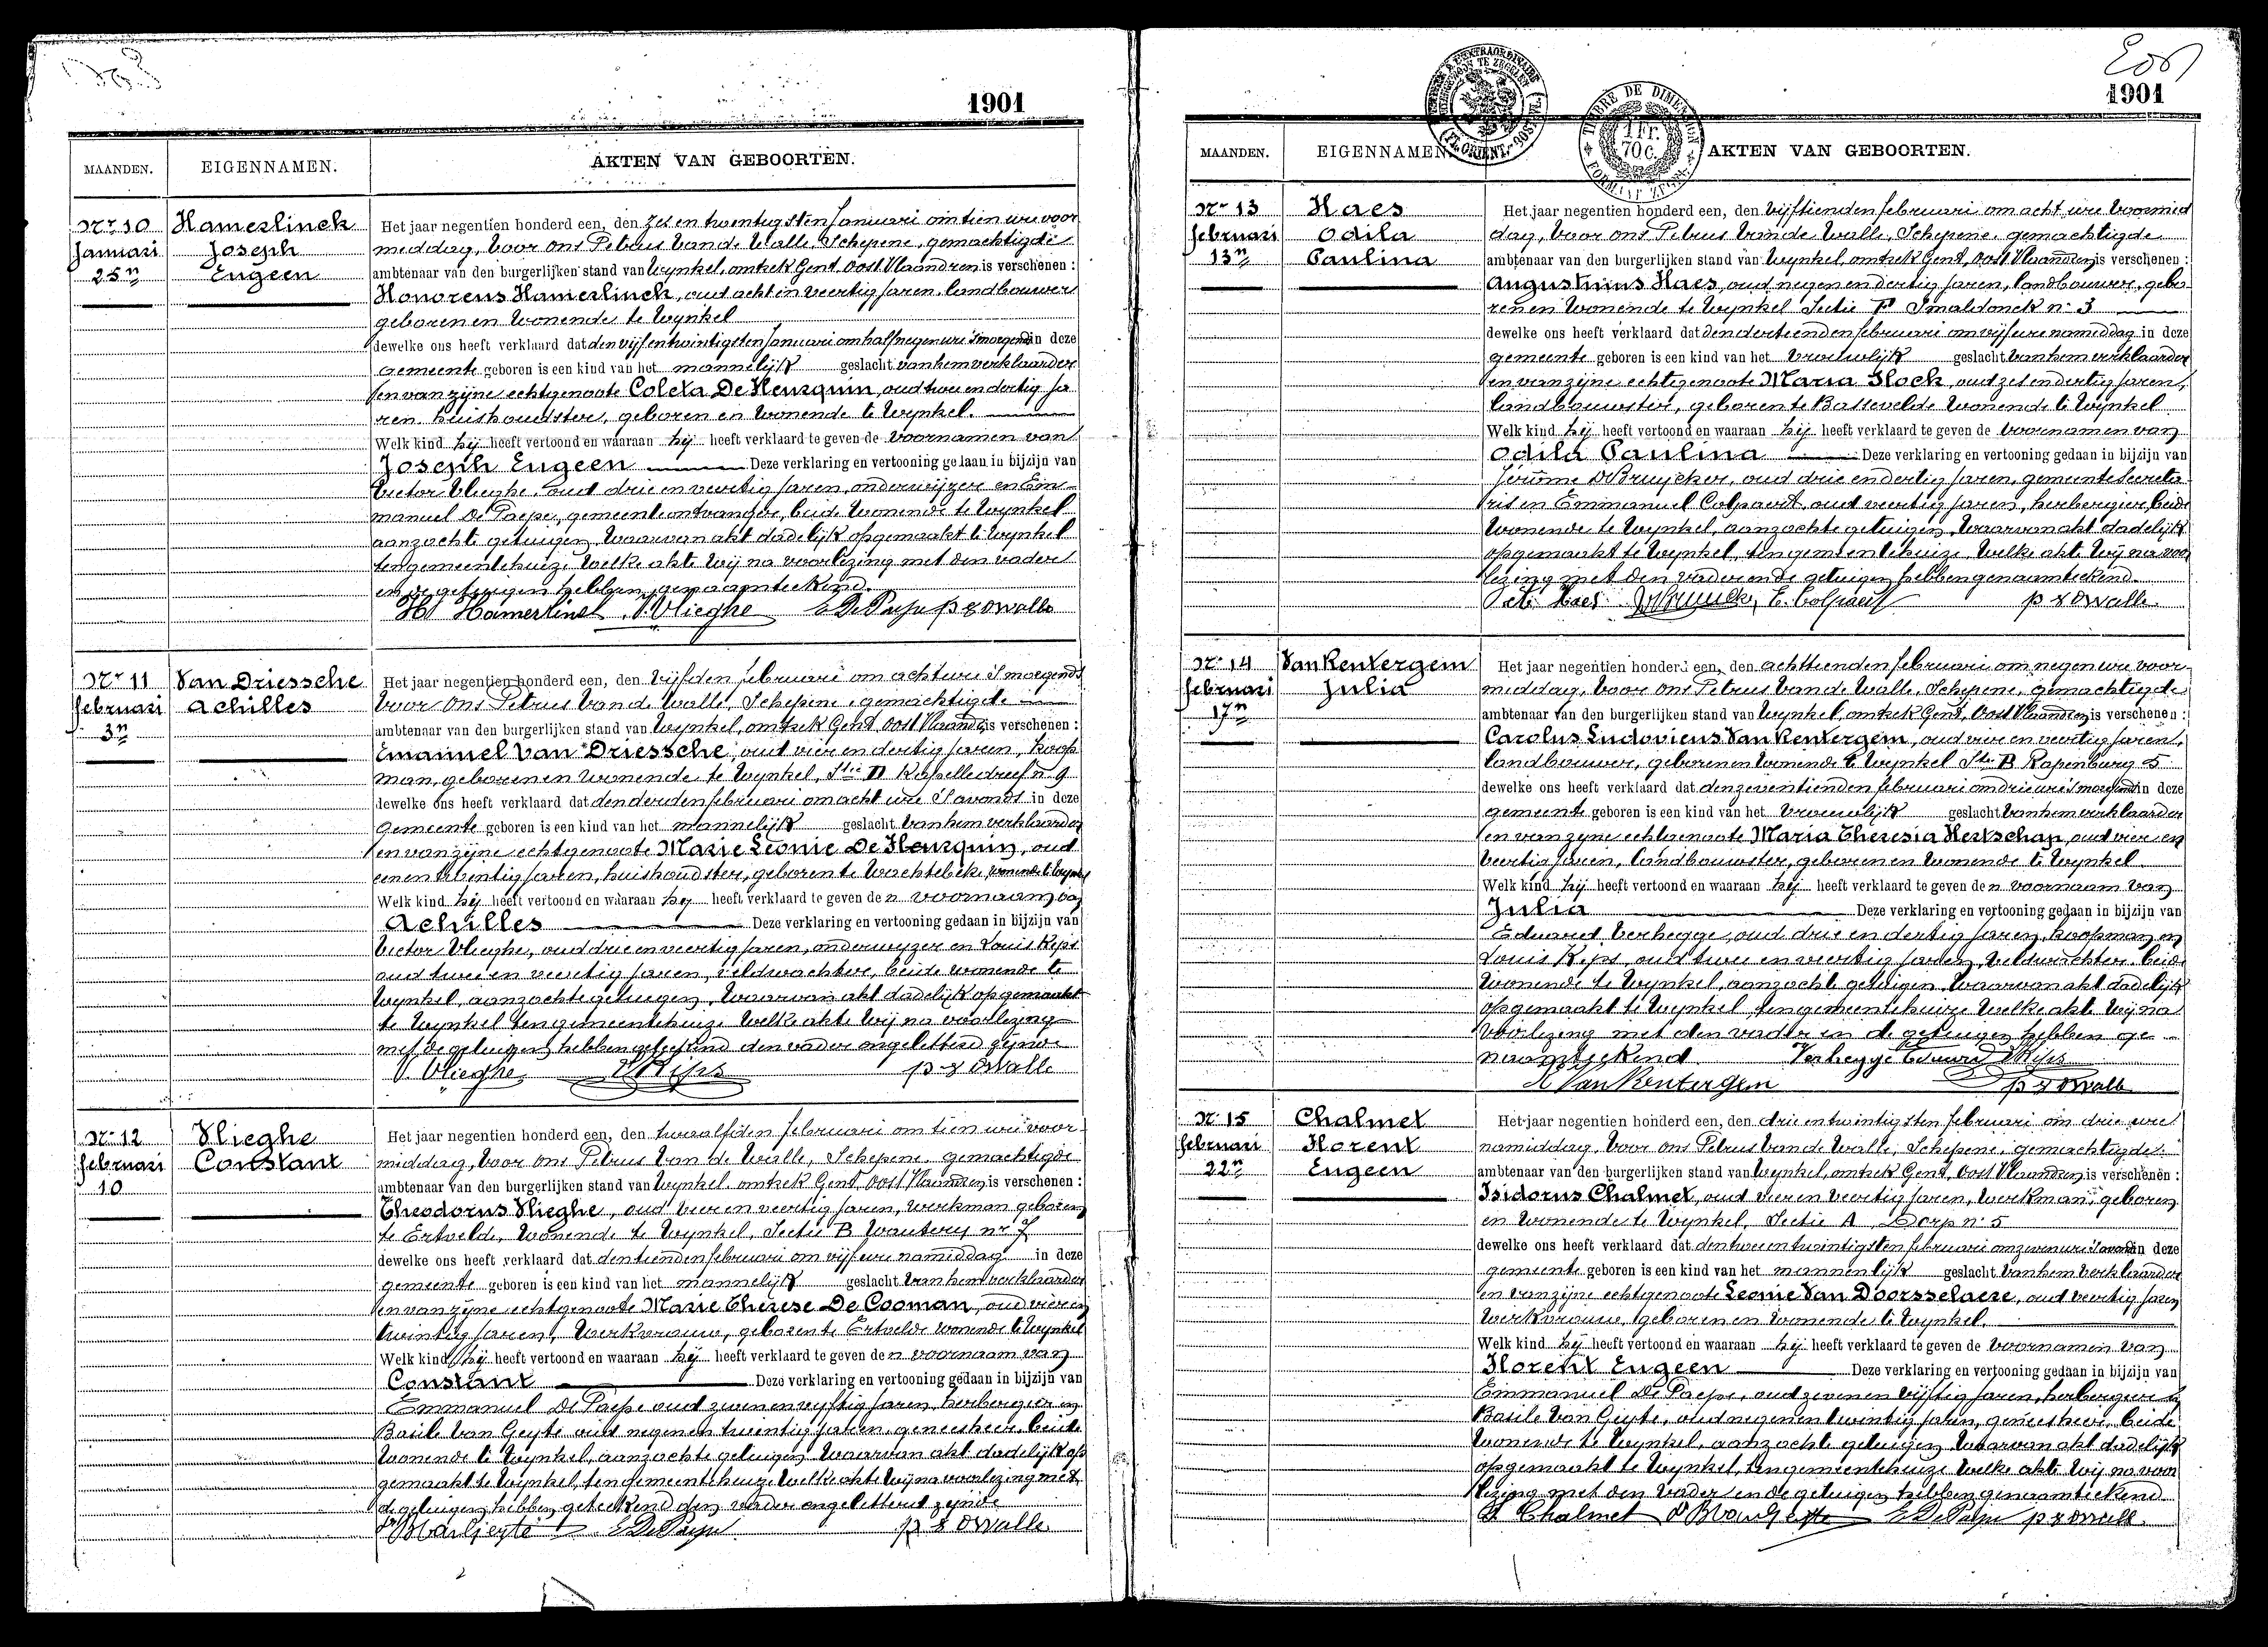 1901
MAANDEN. EIGENNAMEN. AKTEN VAN GEBOORTEN.
Nr 10 Hamerlinck
Januari Joseph
25n Eugeen
Het jaar negentien honderd een, den zes en twintigsten Januari om tien ure voor
middag, voor ons Petrus Van de Walle, Schepene, gemachtigde
ambtenaar van den burgerlijken stand van Wynkel, omtrek Gent, Oost Vlaandren is verschenen :
Honoreus Hamerlinck, oud acht en veertig jaren, landbouwer
geboren en wonende te Wynkel
dewelke ons heeft verklaard dat den vijf en twintigsten Januari om half negen ure 's morgends in deze
gemeente geboren is een kind van het mannelijk geslacht van hem verklaarder
en van zijne echtgenoote Coleta De Heusquin, oud twee en dertig ja
ren, huishoudster, geboren en wonende te Wynkel.
Welk kind hij heeft vertoond en waaraan hij heeft verklaard te geven de voornamen van
Joseph Eugeen Deze verklaring en vertooning gedaan in bijzijn van
Victor Vlieghe, oud drie en veertig jaren, onderwijzer en Em-
manuel De Paepe, gemeente ontvanger, beide wonende te Wynkel
aanzochte getuigen. Waarvan akt dadelijk opgemaakt te Wynkel
ten gemeentehuize welke akte wij na voorlezing met den vader
en de getuigen hebben genaamteekend.
H Hamerlinck V. Vlieghe E De Paepe p v d Walle
Nr 11 Van Driessche
februari Achilles
3n
Het jaar negentien honderd een, den vijfden februari om acht ure 's morgends
voor ons Petrus Van de Walle, Schepene, gemachtigde
ambtenaar van den burgerlijken stand van Wynkel, omtrek Gent, Oost Vlaandren is verschenen :
Emanuel Van Driessche oud vier en dertig jaren, koop
man, geboren en wonende te Wynkel, Stie D Kapelledreef n. 9
dewelke ons heeft verklaard dat den derden februari om acht ure 's avonds in deze
gemeente geboren is een kind van het mannelijk geslacht van hem verklaarder
en van zijne echtgenoote Marie Leonie De Heusquin, oud
een en twintig jaren, huishoudster, geboren te Wachtebeke, wonende te Wynkel
Welk kind hij heeft vertoond en waaraan hij heeft verklaard te geven de n voornaam van
Achilles Deze verklaring en vertooning gedaan in bijzijn van
Victor Vlieghe, oud drie en veertig jaren, onderwyzer en Louis Rips
oud twee en veertig jaren, veldwachter, beide wonende te
Wynkel, aanzochte getuigen. Waarvan akt dadelijk opgemaakt
te Wynkel ten gemeentehuize welke akte wij na voorlezing
met de getuigen hebben geteekend den vader ongeletterd zijnde
V. Vlieghe L Rips p v d Walle
Nr 12 Vlieghe
februari Constant
10
Het jaar negentien honderd een, den twaalfden februari om tien ure voor-
middag, voor ons Petrus Van de Walle, Schepene, gemachtigde
ambtenaar van den burgerlijken stand van Wynkel, omtrek Gent, Oost Vlaandren is verschenen :
Theodorus Vlieghe, oud vier en veertig jaren, werkman geboren
te Ertvelde, wonende te Wynkel, Sectie B Wautery nr 7
dewelke ons heeft verklaard dat den tienden februari om vijf ure namiddag in deze
gemeente geboren is een kind van het mannelijk geslacht van hem verklaarder
en van zijne echtgenoote Marie Therese De Cooman, oud vier en
twintig jaren, werkvrouw, geboren te Ertvelde wonende te Wynkel
Welk kind hij heeft vertoond en waaraan hij heeft verklaard te geven de n voornaam van
Constant Deze verklaring en vertooning gedaan in bijzijn van
Emmanuel De Paepe oud zeven en vyftig jaren, herbergier en
Basile Van Geyte oud negen en twintig jaren, geneesheer, beide
wonende te Wynkel, aanzochte getuigen waarvan akt dadelijk op
gemaakt te Wynkel, ten gemeentehuize welke akte wij na voorlezing met
de getuigen hebben geteekend den vader ongeletterd zijnde
E De Paepe p v d Walle
1901
TIMBRE DE DIMENSION
1 FR.
70 C.
MAANDEN. EIGENNAMEN. AKTEN VAN GEBOORTEN.
Nr 13 Haes
februari Odila
13n Paulina
Het jaar negentien honderd een, den vijftienden februari om acht ure voormid
dag, voor ons Petrus Van de Walle, Schepene, gemachtigde
ambtenaar van den burgerlijken stand van Wynkel, omtrek Gent, Oost Vlaandren is verschenen :
Augustinus Haes, oud negen en dertig jaren, landbouwer, gebo
ren en wonende te Wynkel Sectie F Smaldonck n. 3
dewelke ons heeft verklaard dat den dertienden februari om vijf ure namiddag in deze
gemeente geboren is een kind van het vrouwelijk geslacht van hem verklaarder
en van zijne echtgenoote Maria Hock, oud zes en dertig jaren,
landbouwster, geboren te Bassevelde wonende te Wynkel
Welk kind hij heeft vertoond en waaraan hij heeft verklaard te geven de voornamen van
Odila Paulina Deze verklaring en vertooning gedaan in bijzijn van
Jérôme De Bruycker, oud drie en dertig jaren, gemeente Secreta
ris en Emmanuel Colpaert, oud veertig jaren, herbergier, beide
wonende te Wynkel, aanzochte getuigen. Waarvan akt dadelijk
opgemaakt te Wynkel, ten gemeentehuize, welke akte wij na voor
lezing met den vader en de getuigen hebben genaamteekend.
Haes E. Colpaert p v d Walle
Nr 14 Van Kentergem
februari Julia
17n
Het jaar negentien honderd een, den achttienden februari om negen ure voor-
middag, voor ons Petrus Van de Walle, Schepene, gemachtigde
ambtenaar van den burgerlijken stand van Wynkel, omtrek Gent, Oost Vlaandren is verschenen :
Carolus Ludovicus Van Kentergem, oud vier en veertig jaren,
landbouwer, geboren en wonende te Wynkel Stie B Rapenburg 5
dewelke ons heeft verklaard dat den zeventienden februari om drie ure 's morgends in deze
gemeente geboren is een kind van het vrouwelijk geslacht van hem verklaarder
en van zijne echtgenoote Maria Theresia Hertschap, oud vier en
veertig jaren, landbouwster, geboren en wonende te Wynkel
Welk kind hij heeft vertoond en waaraan hij heeft verklaard te geven de n voornaam van
Julia Deze verklaring en vertooning gedaan in bijzijn van
Eduard Verhegge, oud drie en dertig jaren, koopman en
Louis Rips, oud twee en veertig jaren, veldwachter beide
wonende te Wynkel, aanzochte getuigen. Waarvan akt dadelijk
opgemaakt te Wynkel ten gemeentehuize welke akte wij na
voorlezing met den vader en de getuigen hebben ge-
naamteekend Verhegge Eduard L Rips
K Van Kentergem p v d Walle
Nr 15 Chalmet
februari Florent
22n Eugeen
Het jaar negentien honderd een, den drie en twintigsten februari om drie ure
namiddag, voor ons Petrus Van de Walle, Schepene, gemachtigde
ambtenaar van den burgerlijken stand van Wynkel, omtrek Gent, Oost Vlaandren is verschenen :
Isidorus Chalmet, oud vier en veertig jaren, werkman, geboren
en wonende te Wynkel, Sectie A Dorp n. 5
dewelke ons heeft verklaard dat den twee en twintigsten februari om zeven ure 's avonds in deze
gemeente geboren is een kind van het mannelijk geslacht van hem verklaarder
en van zijne echtgenoote Leonie Van Doorsselaere, oud veertig jaren
werkvrouw, geboren en wonende te Wynkel.
Welk kind hij heeft vertoond en waaraan hij heeft verklaard te geven de voornamen van
Florent Eugeen Deze verklaring en vertooning gedaan in bijzijn van
Emmanuel De Paepe, oud zeven en vijftig jaren, herbergier en
Basile Van Geyte, oud negen en twintig jaren, geneesheer, beide
wonende te Wynkel, aanzochte getuigen. Waarvan akt dadelijk
opgemaakt te Wynkel, ten gemeentehuize welke akte wij na voor
lezing met den vader en de getuigen hebben genaamteekend
I. Chalmet Dr B Van Geyte E De Paepe p v d Walle